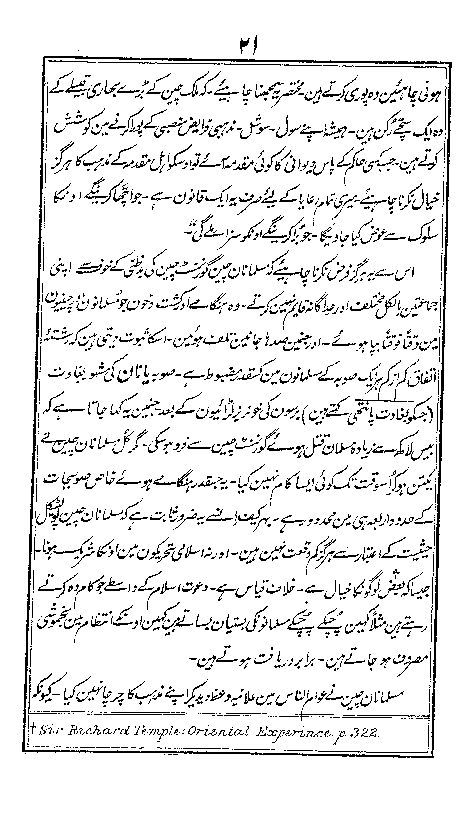 ۲۱
ہونی چاہئین وہ پوری کرتے ہین۔ مختصر یہ سمجھنا چاہیئے۔ کہ ملک چین کے بڑے بھاری قبیلے کے
وہ ایک سچے رکن ہین۔ ہمیشہ اپنے سول۔ سوشل۔ مذہبی فرایض منصبی کے پورا کرنے مین کوشش
کرتے ہین۔ جب کسی حاکم کے پاس دیوانی کا کوئی مقدمہ آئے تو اوسکو اہل مقدمہ کے مذہب کا ہرگز
خیال نکرنا چاہیے۔ میری تمام رعایا کے لیئے صرف یہ ایک قانون ہے۔ جو اچھا کرینگے اونکا
سلوک سے عوض کیا جاویگا۔ جو بُرا کرینگے اونکو سزا ملے گی
اس سے یہ ہرگز فرض نکرنا چاہیئے کہ مسلمانان چین گورنمنٹ چین کی بدظنی کے خوف سے اپنی
جماعتین بالکل مختلف اور جداگانہ قایم نہین کرتے۔ وہ ہنگامے اور کشت و خون جو مسلمانون اور چینیون
مین وقتاً فوقتاً بپا ہوئے۔ اور جنمین صدہا جانین تلف ہوئین۔ اسکا ثبوت دیتی ہین کہ رشتہ
اتفاق کم از کم ہر ایک صوبہ کے مسلمانون مین کسقدر مضبوط ہے۔ صوبہ یانان کی مشہور بغاوت
(جسکو بغاوت پانتھی کہتے ہین) برسون کی خونریز لڑائیون کے بعد جنمین یہ کہا جاتا ہے کہ
بیس لاکھ سے زیادہ مسلمان قتل ہوئے گورنمنٹ چین سے فرو ہوسکی۔ مگر کُل مسلمانان چین نے
یکتن ہوکر اسوقت تک کوئی ایسا کام نہین کیا۔ یہ جسقدر ہنگامے ہوئے خاص صوبجات
کے حدود اربعہ ہی مین محدود رہے۔ بہر کیف اِنسے یہ ضرور ثابت ہے کہ مسلمانان چین پولٹکل
حیثیت کے اعتبار سے ہرگز کم وقعت نہین ہین۔ اور نہ اسلامی تحریکون مین اونکا شریک ہونا۔
جیسا کہ بعض لوگونکا خیال ہے۔ خلاف قیاس ہے۔ دعوت اسلام کے واسطے جو کام وہ کرتے
رہتے ہین مثلاً کہین چپکے چپکے مسلمانونکی بستیان بساتے ہین کہین اونکے انتظام مین بخموشی
مصروف ہو جاتے ہین۔ برابر دریافت ہوتے ہین۔
مسلمانان چین نے عوام الناس مین علانیہ وعظ دیکر اپنے مذہب کا چرچا نہین کیا۔ کیونکہ
† Sir Richard Temple: Oriental Experince. p. 322.